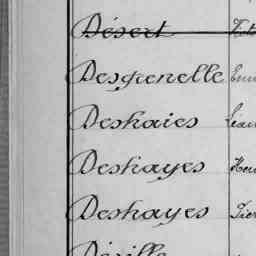 Désert
Desgrenelle
Deshaies
Deshayes
Deshayes
Déville